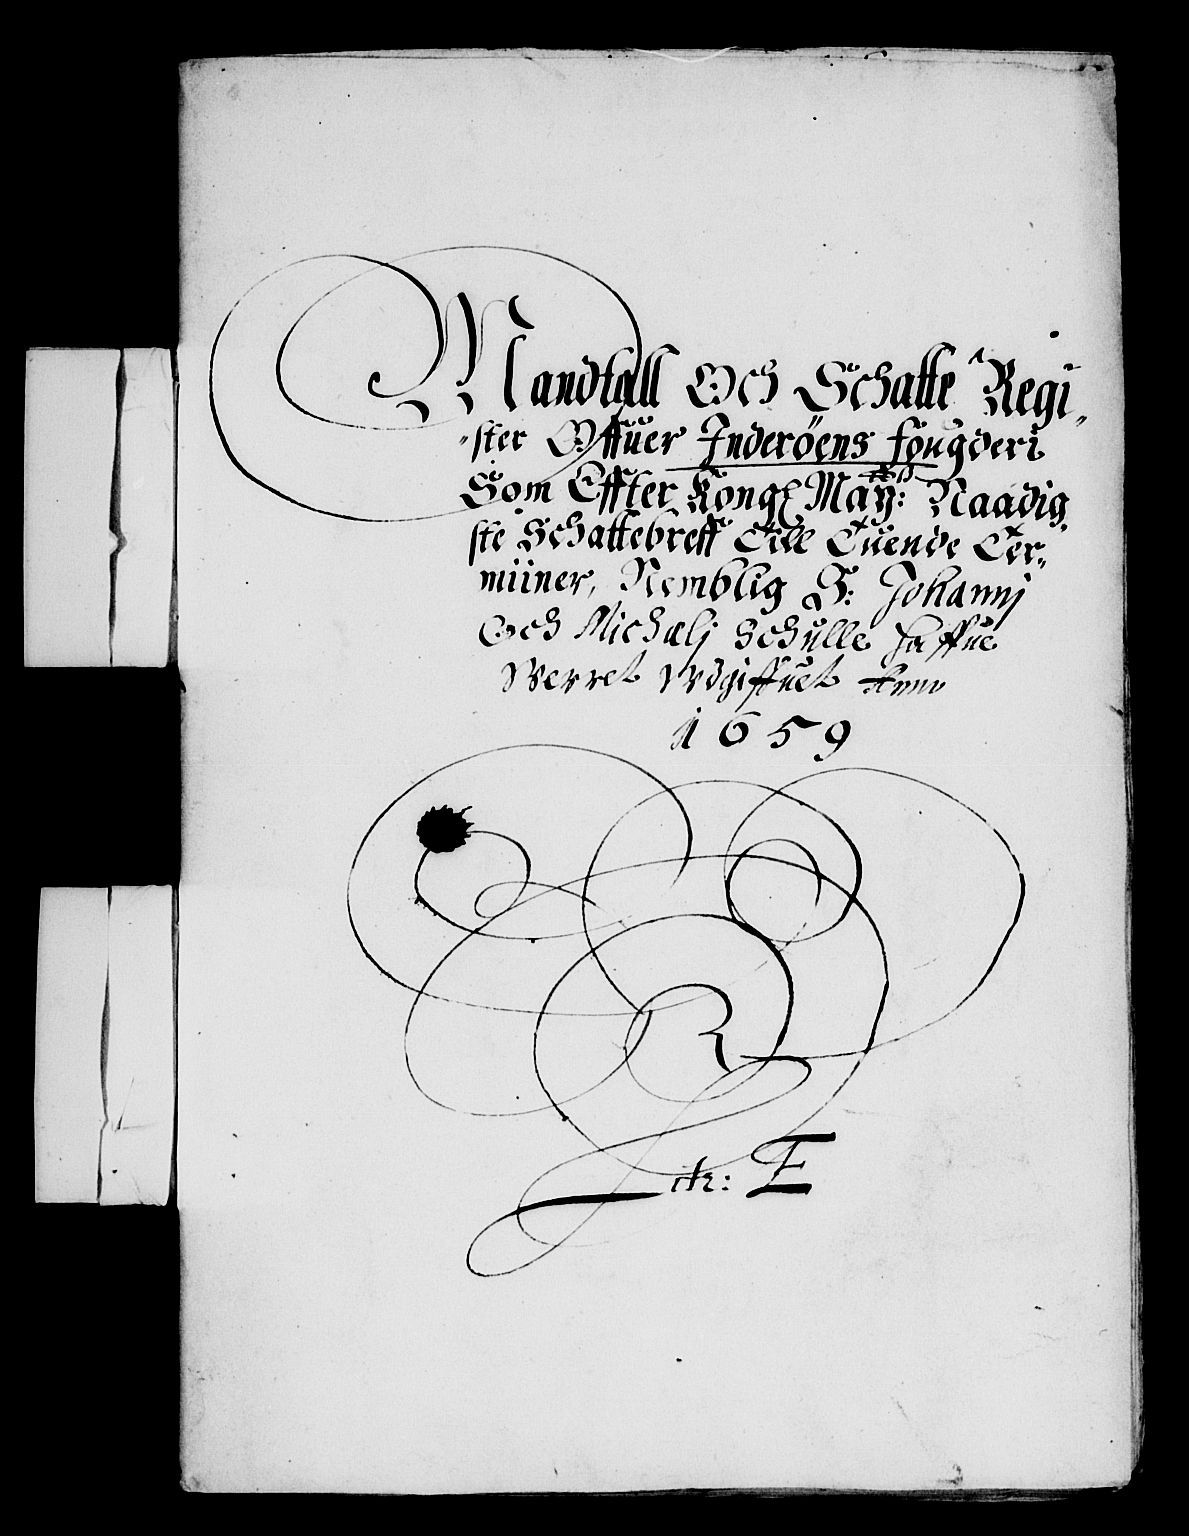 Mandtall Och Schatte Regi-
-ster Offuer Inderöens fougderi
Som Effter Kongl May:tts Naadig-
ste Schattebreff Till Tuende Ter-
miiner, Nemblig S: Johannj
Och Michælj Schulle haffue
Werret Vdgiffuet Anno
1659
Litr: E